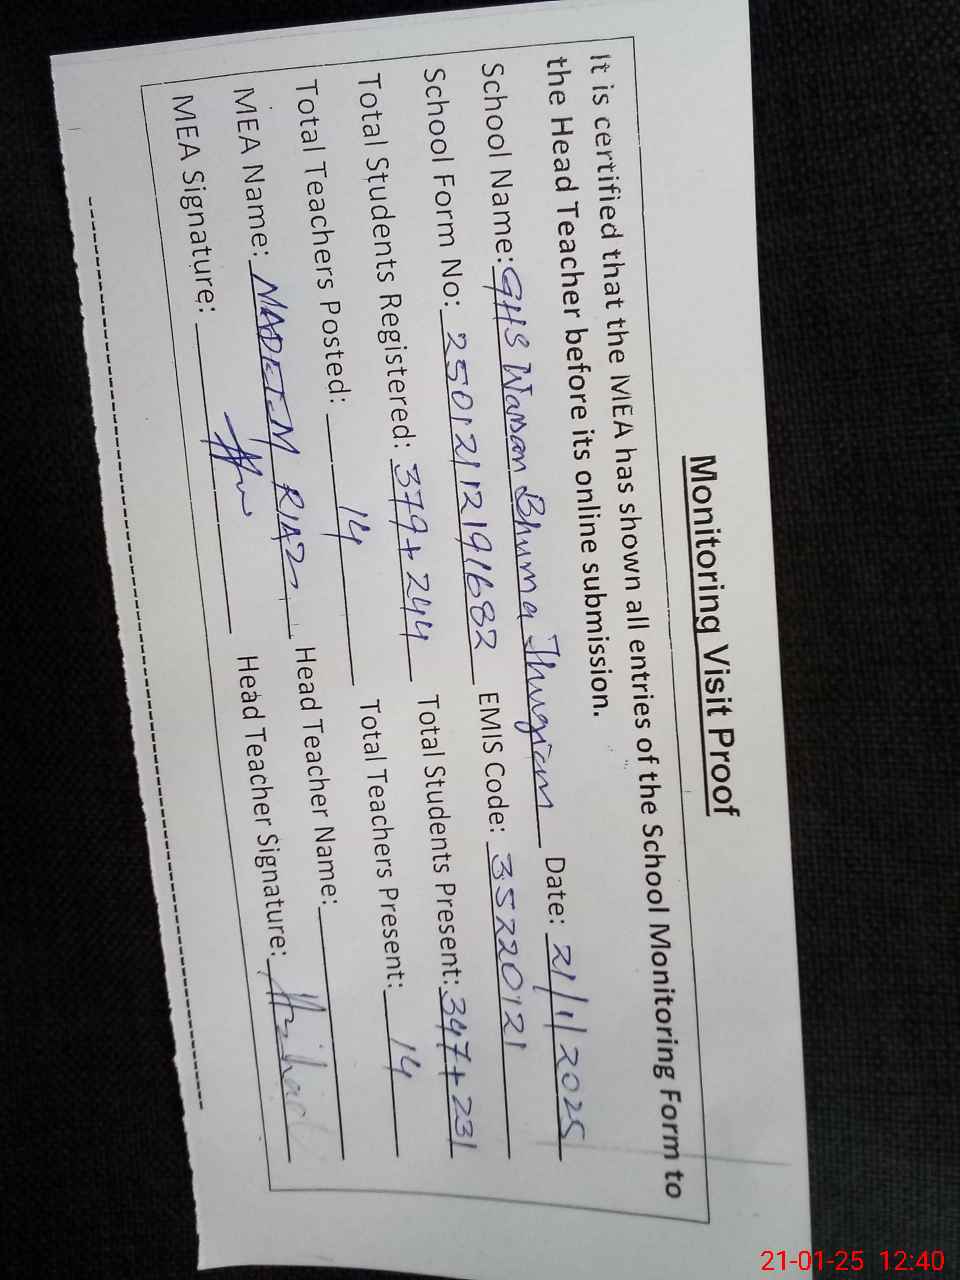 Monitoring Visit Proof
It is certified that the MEA has shown all entries of the School Monitoring Form to
the Head Teacher before its online submission.
School Name: GHS Waran Bhuma Jhugian Date: 21/1/2025
School Form No: 25012112191682 EMIS Code: 35220121
Total Students Registered: 379+244 Total Students Present: 347+231
Total Teachers Posted: 14 Total Teachers Present: 14
MEA Name: NADEEM RIAZ Head Teacher Name:
MEA Signature: Head Teacher Signature:
21-01-25 12:40